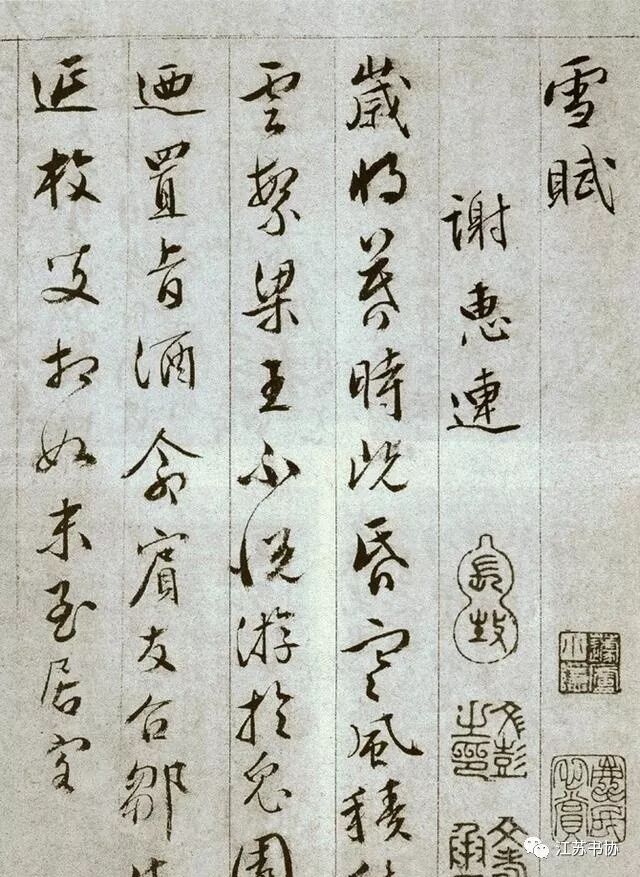 雪賦
謝惠連
歲將暮時既昏寒風積
雲繁梁王不悅游於兔園
迺置旨酒命賓友召鄒
延枚叟相如末至居客
文彭之印
江苏书协